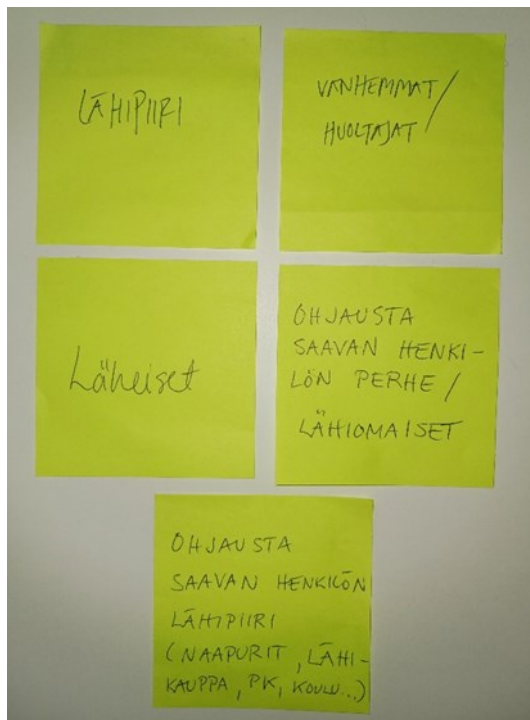 LÄHIPIIRI
VANHEMMAT/
HUOLTAJAT
Läheiset
OHJAUSTA
SAAVAN HENKI-
LÖN PERHE/
LÄHIOMAISET
OHJAUSTA
SAAVAN HENKILÖN
LÄHIPIIRI
(NAAPURIT, LÄHI-
KAUPPA, PK, KOULU...)